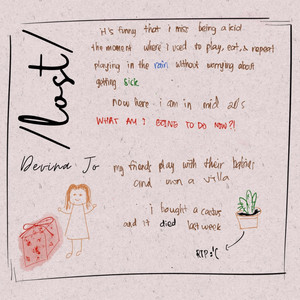 /lost/
It's funny that i miss being a kid
the moment where i used to play, eat, & repeat
playing in the rain without worrying about
getting sick
now here i am in mid 20's
WHAT AM I GOING TO DO NOW?!
Devina Jo
my friends play with their babies
and own a villa
i bought a cactus
and it died last week
RIP :'(